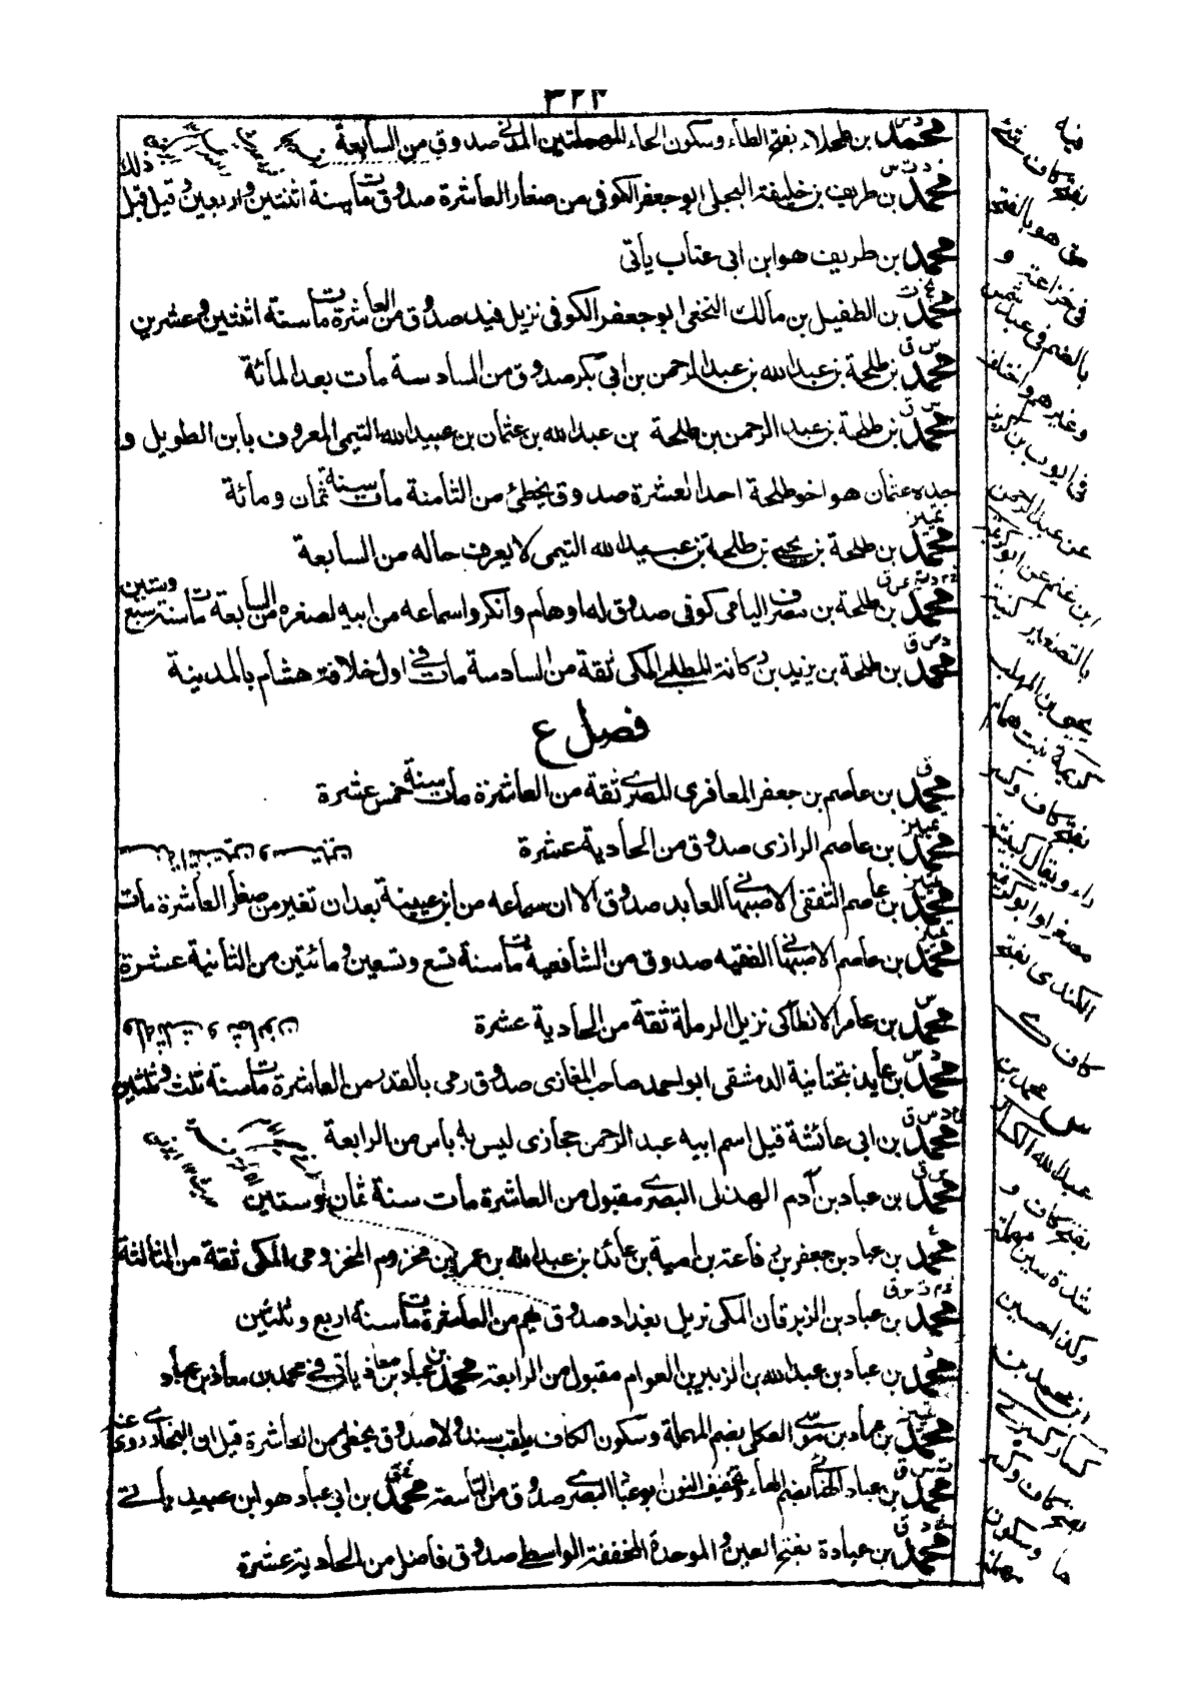 ٣٢٣
محمد بن طحلاء بفتح الطاء وسكون الحاء المهملتين المدنى صدوق من السابعة
محمد بن طريف بن خليفة البجلى ابو جعفر الكوفى من صغار العاشرة صدوق مات سنة اثنتين واربعين وقيل قبل ذلك
محمد بن طريف هو ابن ابى عتاب يأتى
محمد بن الطفيل بن مالك النخعى ابو جعفر الكوفى نزيل فيد صدوق من العاشرة مات سنة اثنتين وعشرين
محمد بن طلحة بن عبد الله بن عبد الرحمن بن ابى بكر صدوق من السادسة مات بعد المائة
محمد بن طلحة بن عبد الرحمن بن طلحة بن عبد الله بن عثمان بن عبيد الله التيمى المعروف بابن الطويل و
جده عثمان هو اخو طلحة احد العشرة صدوق يخطئ من الثامنة مات سنة ثمان ومائة
محمد بن طلحة بن يحيى بن طلحة بن عبيد الله التيمى لا يعرف حاله من السابعة
محمد بن طلحة بن مصرف اليامى كوفى صدوق له اوهام وانكروا سماعه من ابيه لصغره من السابعة مات سنة سبع وستين
محمد بن طلحة بن يزيد بن ركانة المطلبى المكى ثقة من السادسة مات فى اول خلافة هشام بالمدينة
فصل ع
محمد بن عاصم بن جعفر المعافرى المصرى ثقة من العاشرة مات سنة خمس عشرة
محمد بن عاصم الرازى صدوق من الحادية عشرة
محمد بن عاصم الثقفى الاصبهانى العابد صدوق الا ان سماعه من ابن عيينة بعد ان تغير من صغار العاشرة مات
سنة اثنتين وستين
محمد بن عاصم الاصبهانى الفقيه صدوق من الشافعية مات سنة تسع وتسعين ومائتين من الثانية عشرة
محمد بن عامر الانطاكى نزيل الرملة ثقة من الحادية عشرة
محمد بن عايذ بتحتانية الدمشقى ابو احمد صاحب المغازى صدوق رمى بالقدر من العاشرة مات سنة ثلث وثلثين
وله اثنتان وثمانون
محمد بن ابى عائشة قيل اسم ابيه عبد الرحمن حجازى ليس به بأس من الرابعة
محمد بن عباد بن آدم الهذلى البصرى مقبول من العاشرة مات سنة ثمان وستين
محمد بن عباد بن جعفر بن رفاعة بن امية بن عائذ بن عبد الله بن عمر بن مخزوم المخزومى المكى ثقة من الثالثة
محمد بن عباد بن الزبرقان المكى نزيل بغداد صدوق يهم من العاشرة مات سنة اربع وثلثين
محمد بن عباد بن عبد الله بن الزبير بن العوام مقبول من الرابعة محمد بن عباد بن معاذ يأتى فى محمد بن معاذ بن عباد
محمد بن عباد بن موسى العكلى بضم المهملة وسكون الكاف يلقب سندولا صدوق يخطئ من العاشرة قيل ان البخارى روى عنه
محمد بن عباد الهنائى بضم الهاء وتخفيف النون ابو عباد البصرى صدوق من التاسعة محمد بن ابى عباد هو ابن عبيد يأتى
محمد بن عبادة بفتح العين والموحدة المخففة الواسطى صدوق فاضل من الحادية عشرة
فيه
بفتح كاف
هو بالفتح
فى خزاعة و
بالضم فى عبد شمس
وغيرهم واختلف
فى ايوب بن كريز
عن عبد الرحمن
ابن غنم
بالتصغير كنية
يحيى بن المهلب
كريمة بنت همام
بفتح كاف وكسر
راء ويقال
مصغرا وابو كريمة
الكندى بفتح
كاف
س محمد بن
عبد الله الكسار
بفتح كاف و
شدة سين مهملة
وكذا الحسين
ابن محمد بن
كسار
بفتح كاف وكسر
ها وسكون
مهملة